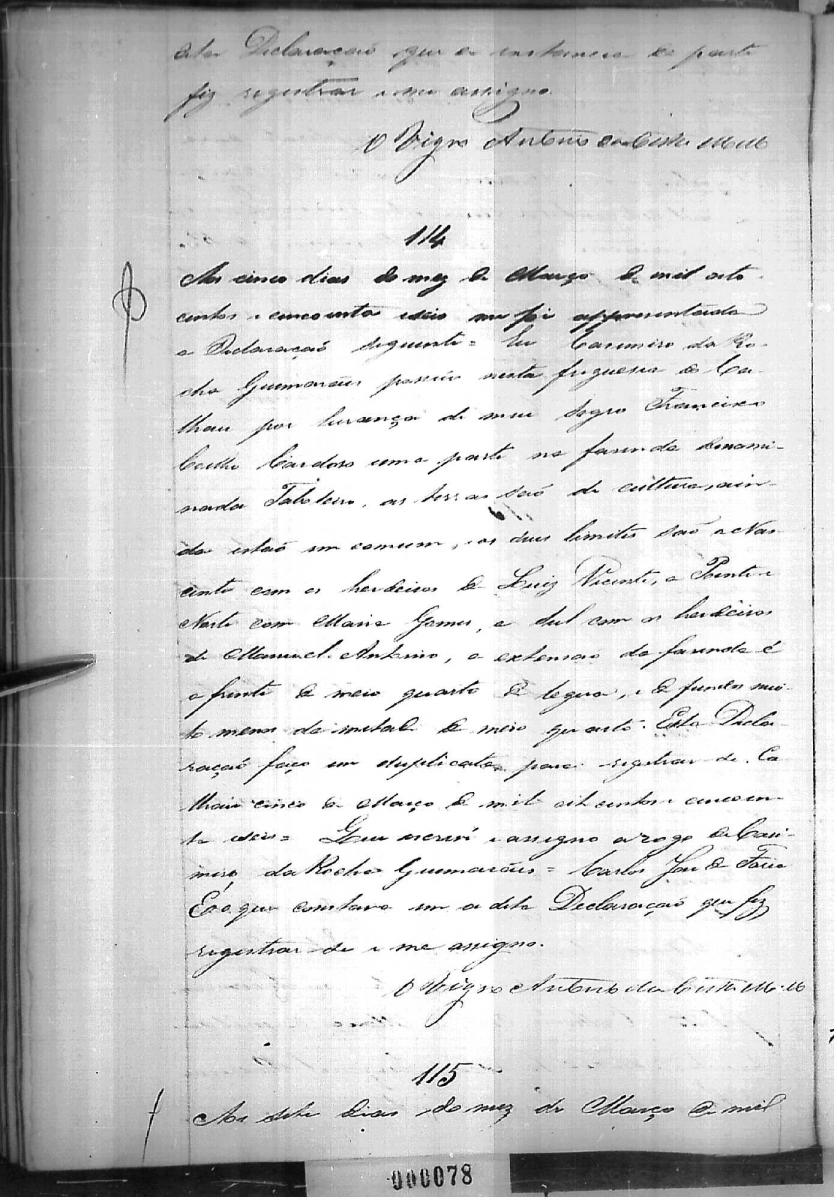 dita Declaração que a instancia de parte
fiz registrar e me assigno.
O Vigro Antonio da Costa
114
Aos cinco dias do mez de Março de mil oito
centos e cincoenta e seis me foi appresentada
a Declaração seguinte = Eu Casimiro da Ro-
cha Guimarães possúo nesta freguesia de Ca-
por herança de meu sogro Francisco
Coelho Cardoso uma parte na fazenda denomi-
nada Taboleiro, as terras são de cultura, ain-
da estão em comum, os seus limites são a Nas-
cente com os herdeiros de Luiz Vicente, a Poente e
Norte com Maria Gomes, a Sul com os herdeiros
de Manuel Antonio, a extensão da fazenda é
a frente de meio quarto de legoa, e de fundos mui-
to menos da metade de meio quarto. Esta Decla-
ração faço em duplicata para registrar-se. Ca-
cinco de Março de mil oit centos e cincoen-
ta e seis = Que escrevi e assigno a rogo de Casi-
miro da Rocha Guimarães = Carlos José de Faria
É o que constava em a dita Declaração que fiz
registrar e me assigno.
O Vigro Antonio da Costa
115
Aos sete dias do mez de Março de mil
000078